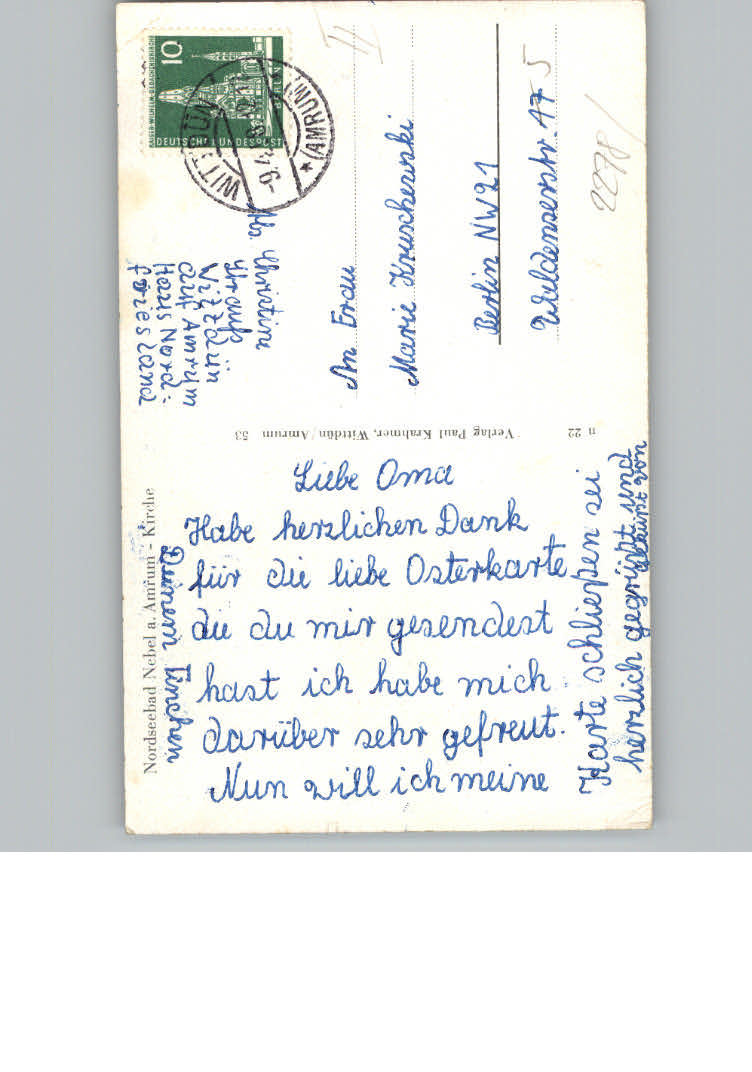 Liebe Oma
Habe herzlichen Dank
für die liebe Osterkarte
die du mir gesendest
hast ich habe mich
darüber sehr gefreut.
Nun will ich meine
Karte schließen sei
herzlich gegrüßt und
geküßt von
Deinem Tinchen
Nordseebad Nebel a. Amrum - Kirche
n 22 Verlag Paul Krahmer, Wittdün/Amrum 53
Abs. Christine
Strauß
Wittdün
auf Amrum
Haus Nord=
friesland
An Frau
Marie Kruschewski
Berlin NW21
Wildenowstr. 17 5
2278/
II
10
DEUTSCHE BUNDESPOST
BERLIN
WITTDÜN
(AMRUM)